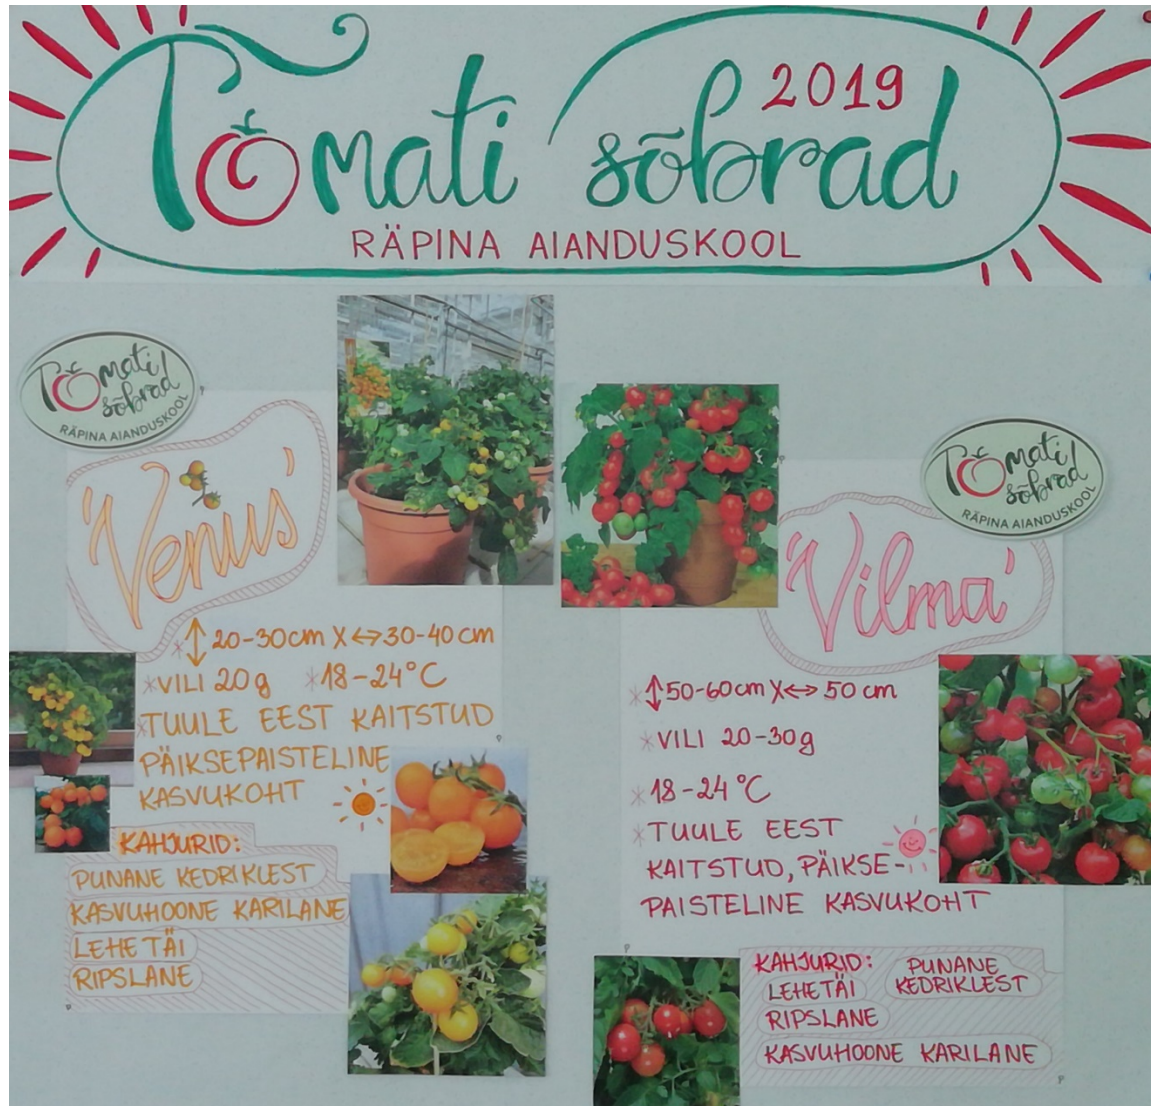 Tomati sõbrad 2019
RÄPINA AIANDUSKOOL
Tomati
sõbrad
RÄPINA AIANDUSKOOL
'Venus'
* ↕ 20-30cm X ↔ 30-40 cm
* VILI 20g * 18-24°C
* TUULE EEST KAITSTUD
PÄIKSEPAISTELINE
KASVUKOHT
KAHJURID:
PUNANE KEDRIKLEST
KASVUHOONE KARILANE
LEHETÄI
RIPSLANE
Tomati
sõbrad
RÄPINA AIANDUSKOOL
'Vilma'
* ↕ 50-60cm X ↔ 50 cm
* VILI 20-30g
* 18-24°C
* TUULE EEST
KAITSTUD, PÄIKSE-
PAISTELINE KASVUKOHT
KAHJURID:
LEHETÄI
PUNANE
KEDRIKLEST
RIPSLANE
KASVUHOONE KARILANE